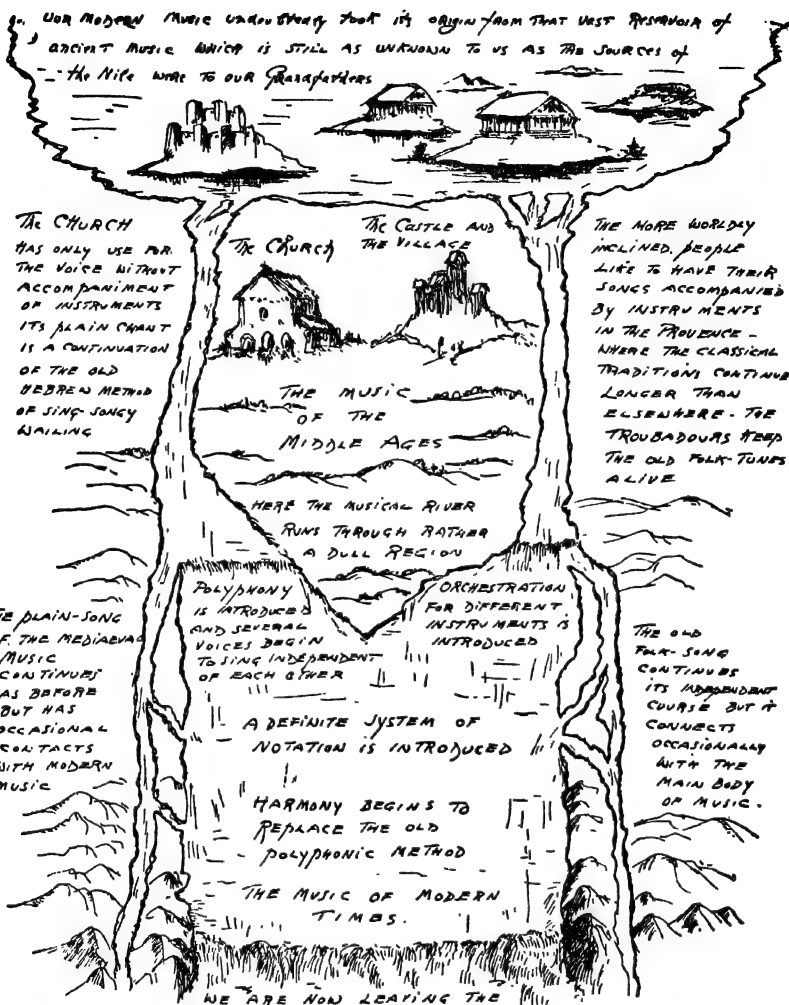 OUR MODERN MUSIC undoubtedly took its ORIGIN from THAT VAST RESERVOIR of
ANCIENT MUSIC WHICH IS STILL AS UNKNOWN TO US AS THE SOURCES of
the Nile WERE TO OUR Grandfathers
The CHURCH
HAS ONLY USE FOR
THE VOICE WITHOUT
ACCOMPANIMENT
OF INSTRUMENTS
ITS PLAIN CHANT
IS A CONTINUATION
OF THE OLD
HEBREW METHOD
OF SING-SONGY
WAILING
The Church
The CASTLE AND
THE VILLAGE
THE MORE WORLDLY
INCLINED. PEOPLE
LIKE TO HAVE THEIR
SONGS ACCOMPANIED
BY INSTRUMENTS
IN THE PROVENCE -
WHERE THE CLASSICAL
TRADITIONS CONTINUE
LONGER THAN
ELSEWHERE - THE
TROUBADOURS KEEP
THE OLD FOLK-TUNES
ALIVE
THE MUSIC
OF THE
MIDDLE AGES
HERE THE MUSICAL RIVER
RUNS THROUGH RATHER
A DULL REGION
POLYPHONY
IS INTRODUCED
AND SEVERAL
VOICES BEGIN
TO SING INDEPENDENT
OF EACH OTHER
ORCHESTRATION
FOR DIFFERENT
INSTRUMENTS IS
INTRODUCED
HE PLAIN-SONG
F. THE MEDIAEVAL
MUSIC
CONTINUES
AS BEFORE
BUT HAS
OCCASIONAL
CONTACTS
WITH MODERN
MUSIC
THE OLD
FOLK-SONG
CONTINUES
ITS INDEPENDENT
COURSE BUT IT
CONNECTS
OCCASIONALLY
WITH THE
MAIN BODY
OF MUSIC.
A DEFINITE SYSTEM OF
NOTATION IS INTRODUCED
HARMONY BEGINS TO
REPLACE THE OLD
POLYPHONIC METHOD
THE MUSIC OF MODERN
TIMES.
WE ARE NOW LEAVING THE